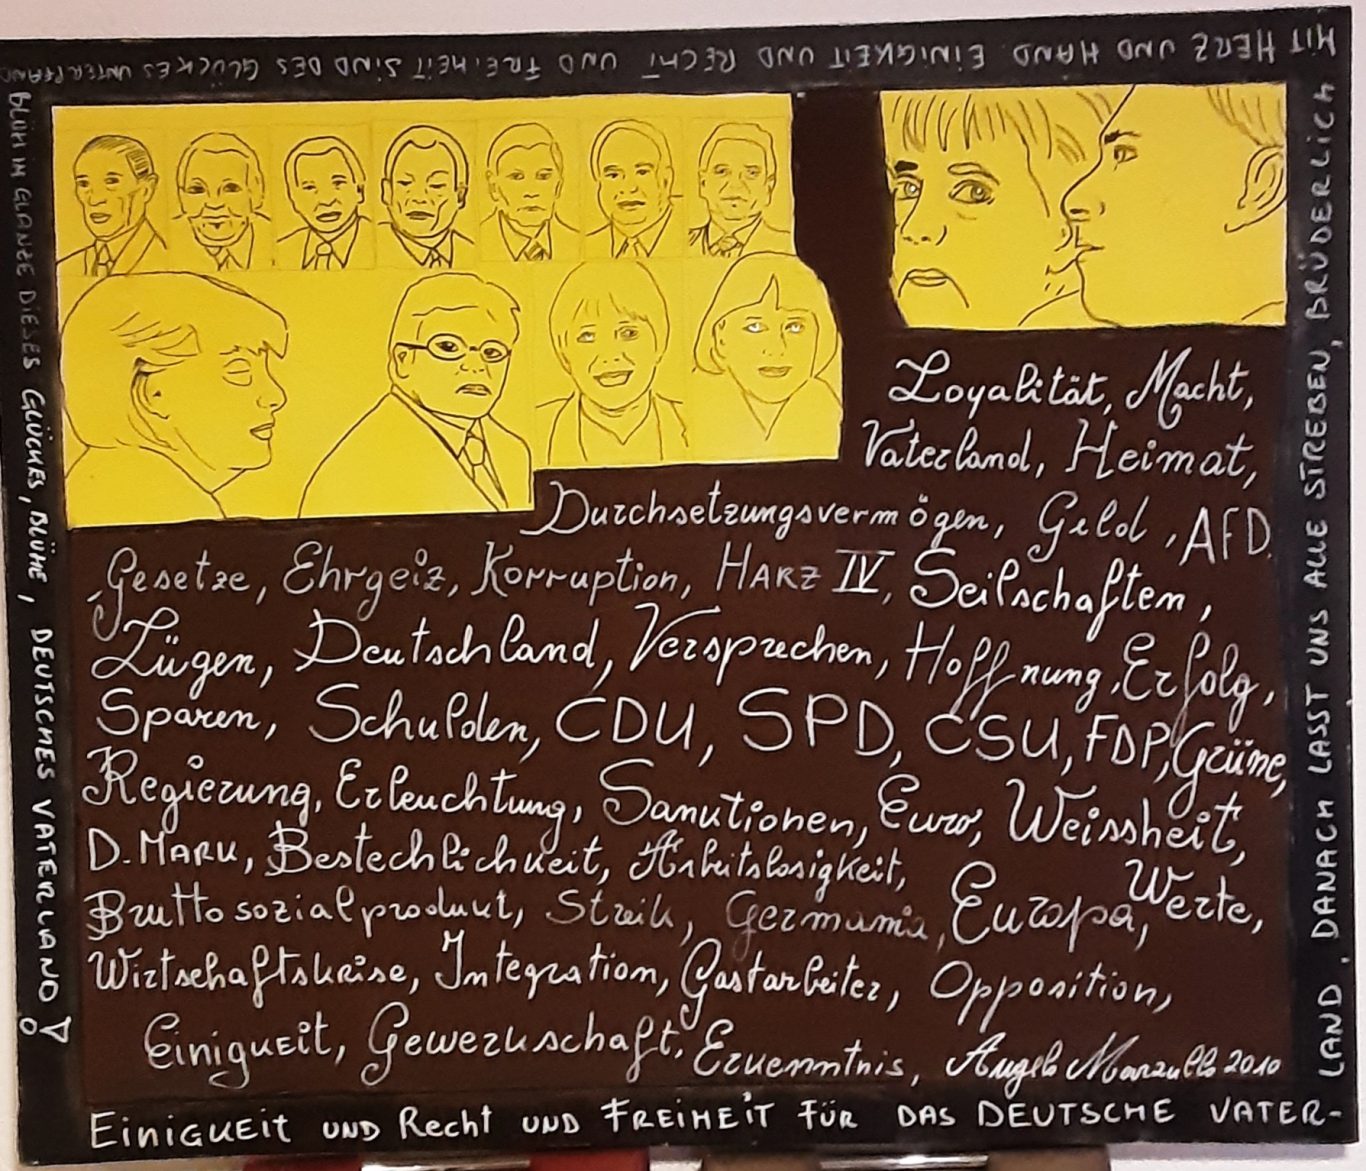 Loyalität, Macht,
Vaterland, Heimat,
Durchsetzungsvermögen, Geld, AFD.
Gesetze, Ehrgeiz, Korruption, HARZ IV, Seilschaften,
Lügen, Deutschland, Versprechen, Hoffnung, Erfolg,
Sparen, Schulden, CDU, SPD, CSU, FDP, Grüne,
Regierung, Erleuchtung, Sanktionen, Euro, Weissheit,
D. MARK, Bestechlichkeit, Arbeitslosigkeit, Werte,
Bruttosozialprodukt, Streik, Germania, Europa,
Wirtschaftskrise, Integration, Gastarbeiter, Opposition,
Einigkeit, Gewerkschaft, Erkenntnis, Angelo Marzullo 2010
EINIGKEIT UND Recht UND FREIHEIT FÜR DAS DEUTSCHE VATER-
LAND, DANACH LASST UNS ALLE STREBEN, BRÜDERLICH
MIT HERZ UND HAND. EINIGKEIT UND RECHT UND FREIHEIT SIND DES GLÜCKES UNTERPFAND
BLÜH IM GLANZE DIESES GLÜCKES, BLÜHE, DEUTSCHES VATERLAND!